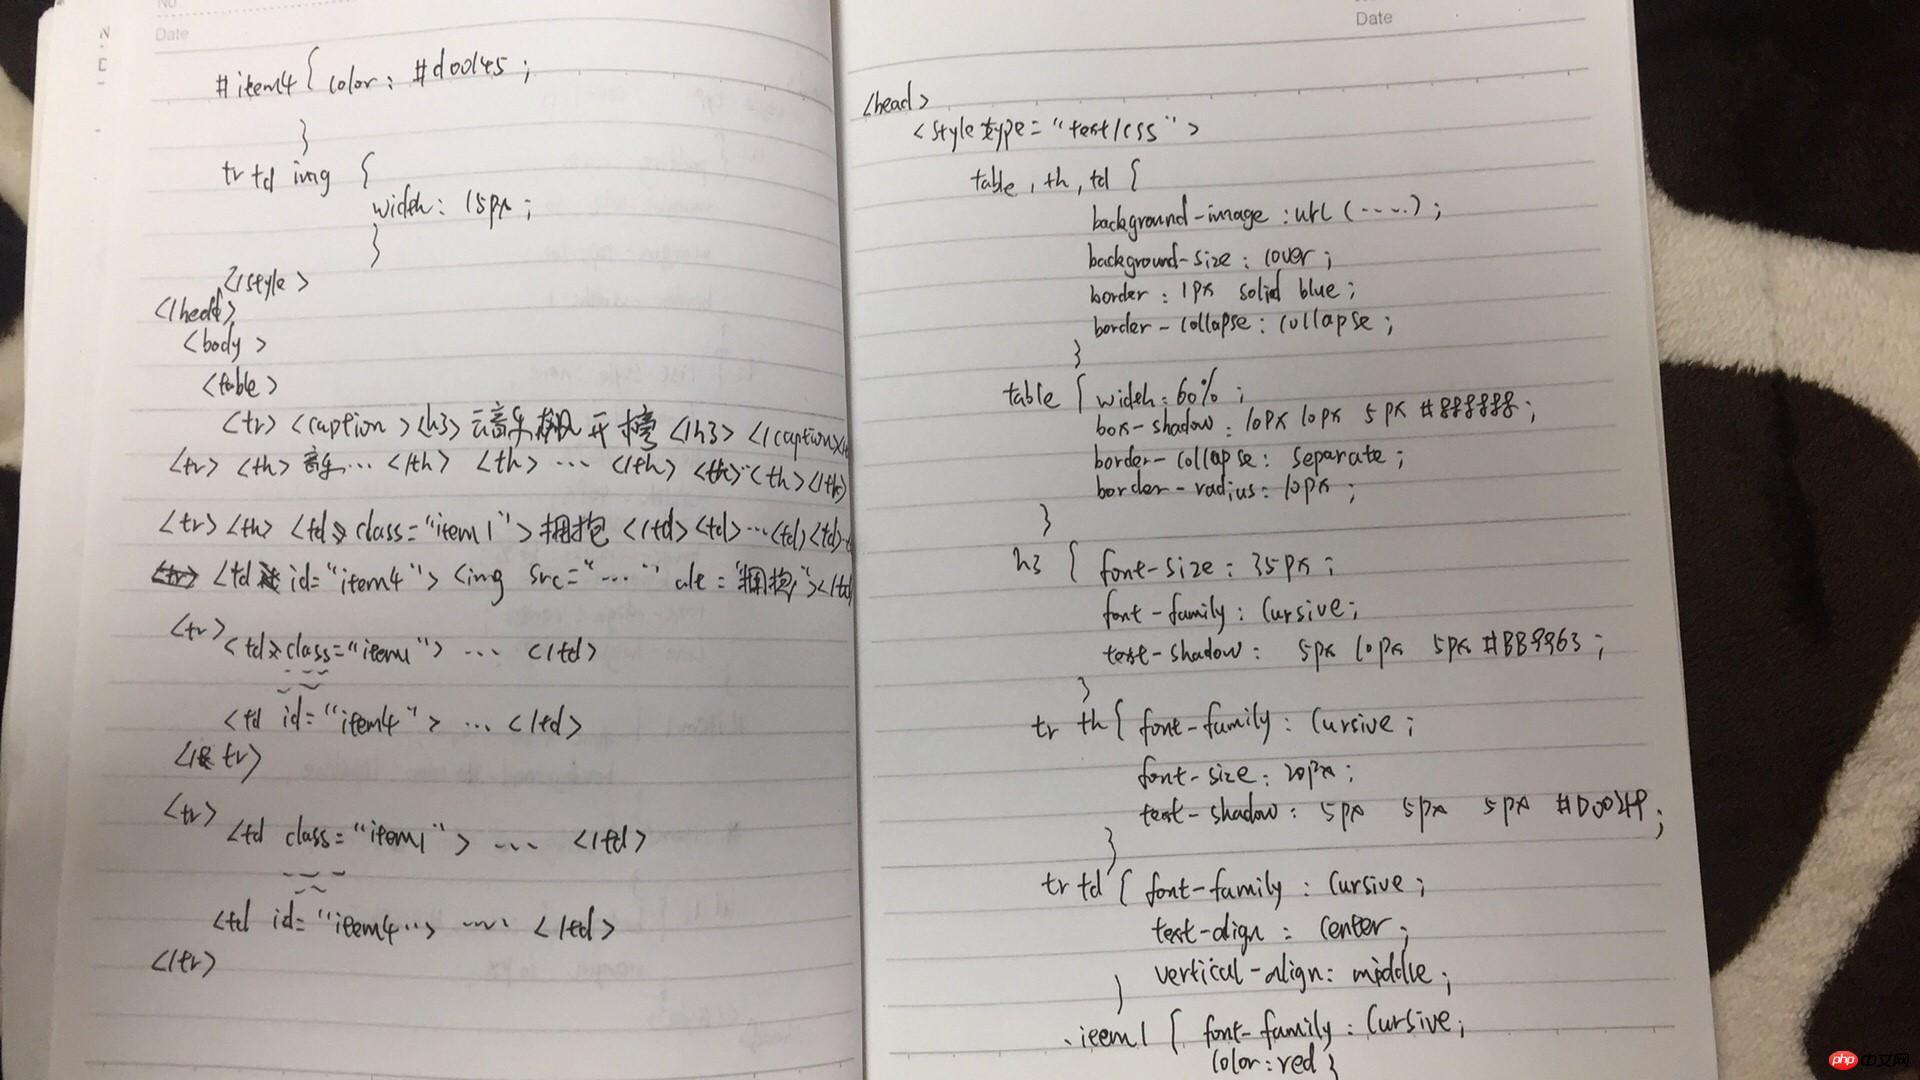 No
Date
#item4{ color: #d00145;
}
tr td img {
width: 15px;
}
</style>
</head>
<body>
<table>
<tr><caption><h3>云音乐飙升榜</h3></caption>
<tr> <th>音乐...</th> <th>...</th> <th><th></th>
<tr><th> <td class="item1">拥抱</td><td>...<td><td>
<tr> <td id="item4"> <img src="...." alt="拥抱"></td
<tr>
<td class="item1"> ... </td>
<td id="item4"> ... </td>
</tr>
<tr>
<td class="item1"> ... </td>
<td id="item4"> .... </td>
</tr>
Date
<head>
<style type="text/css">
table, th, td {
background-image: url(.....);
background-size: cover;
border: 1px solid blue;
border-collapse: collapse;
}
table { width: 60%;
box-shadow: 10px 10px 5px #888888;
border-collapse: separate;
border-radius: 10px;
}
h3 { font-size: 35px;
font-family: Cursive;
text-shadow: 5px 10px 5px
}
tr th{ font-family: Cursive;
font-size: 20px;
text-shadow: 5px 5px 5px
}
tr td { font-family: Cursive;
text-align: center;
vertical-align: middle;
}
.item1 { font-family: Cursive;
color:red}
php中文网